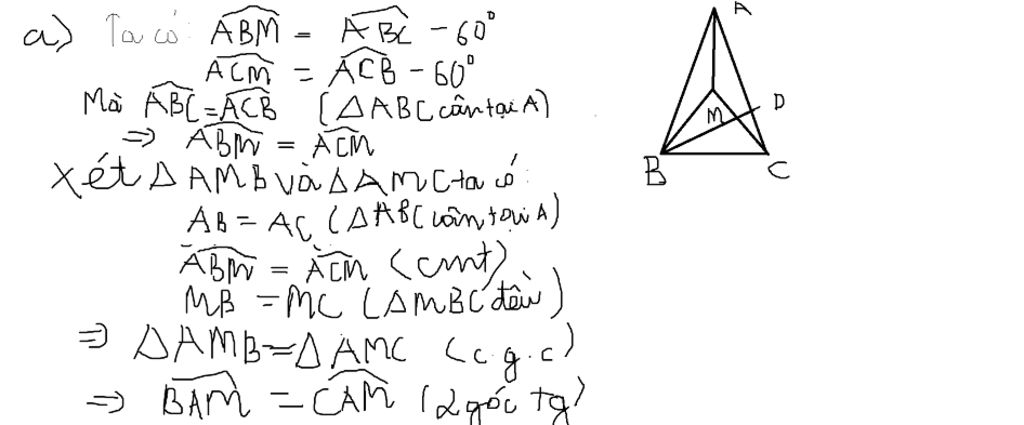 a) Ta có: ABM = ABC - 60°
ACM = ACB - 60°
Mà ABC = ACB (ΔABC cân tại A)
=> ABM = ACM
Xét ΔAMB và ΔAMC ta có:
AB = AC (ΔABC cân tại A)
ABM = ACM (cmt)
MB = MC (ΔMBC đều)
=> ΔAMB = ΔAMC (c.g.c)
=> BAM = CAM (2 góc tg)
A
D
M
B
C